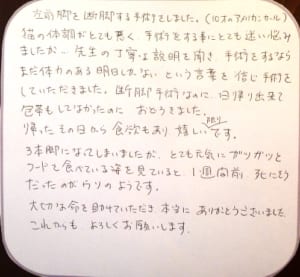 左前脚を断脚する手術をしました。(10才のアメリカンカール)
猫の体調がとても悪く、手術をする事にとても迷い悩み
ましたが、先生の丁寧な説明を聞き、手術をするなら
まだ体力のある明日しかない、という言葉を信じ手術を
していただきました。断脚手術なのに、日帰り出来て
包帯もしてなかったのに おどろきました。
帰ったその日から食欲もあり 嬉しい限りです。
3本脚になってしまいましたが、とても元気にガツガツと
フードを食べている姿を見ていると、1週間前、死にそう
だったのがウソのようです。
大切な命を助けていただき、本当に ありがとうございました
これからも、よろしくお願いします。